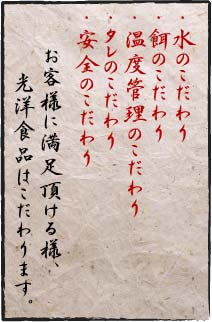 ・水のこだわり
・餌のこだわり
・温度管理のこだわり
・タレのこだわり
・安全のこだわり
お客様に満足頂ける様、
光洋食品はこだわります。